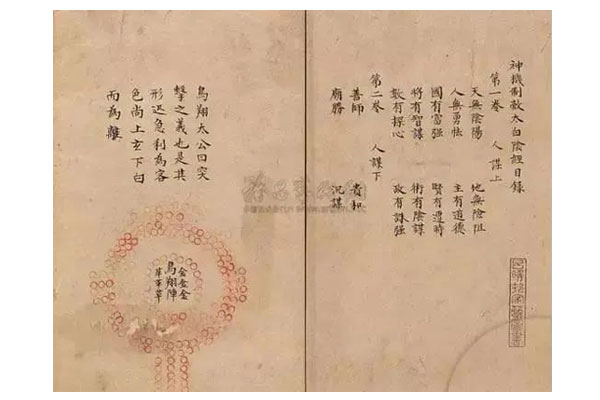 神機制敵太白陰經目錄
第一卷 人謀上
天無陰陽 地無險阻
人無勇怯 主有道德
國有富强 賢有遭時
將有智謀 術有陰謀
數有探心 政有誅强
第二卷 人謀下
善師 貴和
廟勝 沉謀
鳥翔太公曰突
擊之義也是其
形迅急利為客
色尚上玄下白
而為離
金金金
鳥翔陣